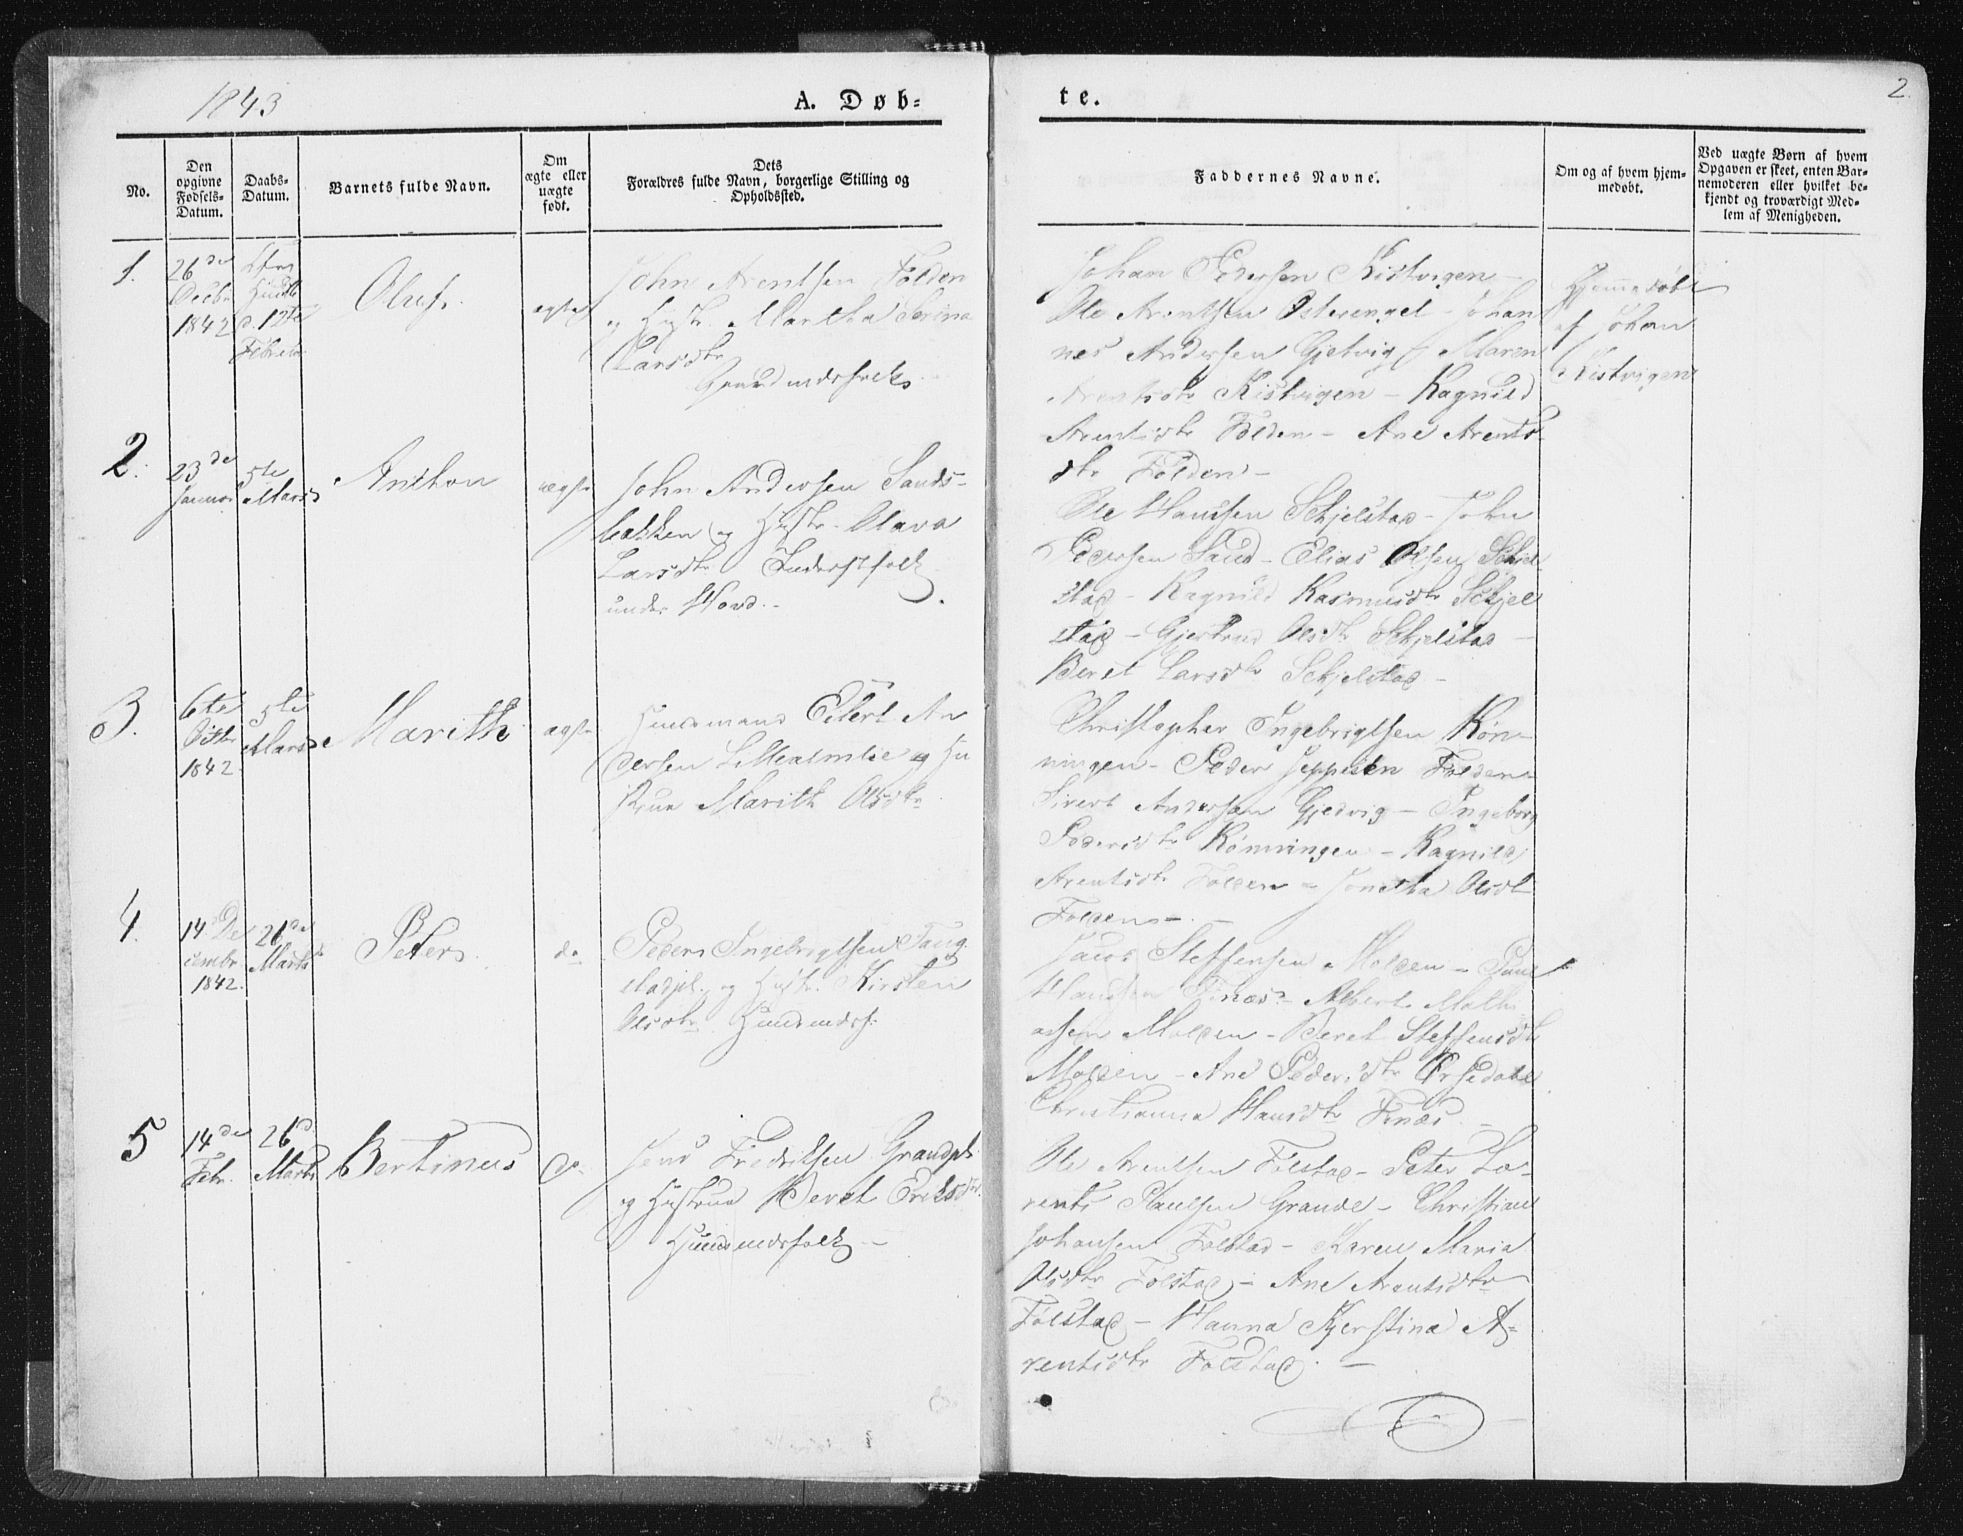 1843
A. Døb=
te.
2.
No.
Den
opgivne
Fødsels-
Datum.
Daabs-
Datum.
Barnets fulde Navn.
Om
ægte eller
uægte
født.
Dets
Forældres fulde Navn, borgerlige Stilling og
Opholdssted.
Faddernes Navne.
Om og af hvem hjem-
medøbt.
Ved uægte Børn af hvem
Opgaven er skeet, enten Bar-
nemoderen eller hvilket be-
kjendt og troværdigt Med-
lem af Menigheden.
1.
26de
Decbr
1842
d. 12te
Februar
Oluf.
ægte
John Arentsen Folden
og Hustr. Martha Serina
Larsdtr
Johan Pedersen Kistvigen
Ole Arentsen Osterenget - Johan
nes Andersen Gjetvig - Maren
Arentsdtr Kistvigen - Ragnild
Arentsdtr Folden - Ane Arents
dtr Folden -
Hjemmedøbt
af Johan
Kistvigen
2.
23de
Januar
5te
Marts
Anthon
ægte
John Andersen Sands-
bakken og Hustr. Olava
Larsdtr Inderstfolk
under Hovd.-
Ole Hansen Schjelstad - John
Pedersen Sand - Elias Olsen Schjel
stad - Ragnild Rasmusdtr Schjel
stad - Gjertrud Olsdtr Schjelstad -
Beret Larsdtr Schjelstad -
3.
6te
Octbr
1842
5te
Marts
Marith
ægte
Huusmand Eilert An
dersen og Hu
strue Marith Olsdtr
Christopher Ingebrigtsen Røn-
ningen - Peder Jeppesen Folden
Sivert Andersen Gjedvig - Ingeborg
Pedersdtr Rønningen - Ragnild
Arentsdtr Folden - Jonetta Olsdt
Folden -
4.
14de De
cembr
1842.
26de
Marts
Peter
do
Peder Ingebrigtsen Faug
stadpl. og Hustr. Kirsten
Olsdtr Huusmdsf.
Jacob Steffensen Molden - Paul
Hansen Finæs - Albert Math
assen Molden - Beret Steffensdtr
Molden - Ane Pedersdtr
Christianna Hansdtr Finæs
5
14de
Febr.
26d
Marts
Bertinus
do
Jens Fredriksen Grandpl.
og Hustrue Beret Eriksdtr
Huusmdsfolk -
Ole Arentsen Følstad - Peter Lo-
rents Paulsen Grande - Christian
Johansen Følstad - Karen Maria
Olsdtr Følstad - Ane Arentsdtr
Følstad - Hanna Kjerstina A=
rentsdtr Følstad. -